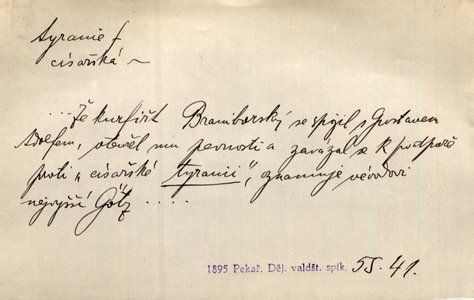 tyranie f
císařská ~
....Že kurfiřt Braniborský se spojil s Gustavem
Adolfem, otevřel mu pevnosti a zavázal se k podpoře
proti „císařské tyranii“, oznamuje vévodovi
nejvyšší Götz ....
1895 Pekař. Děj. valdšt. spik. 55.41.